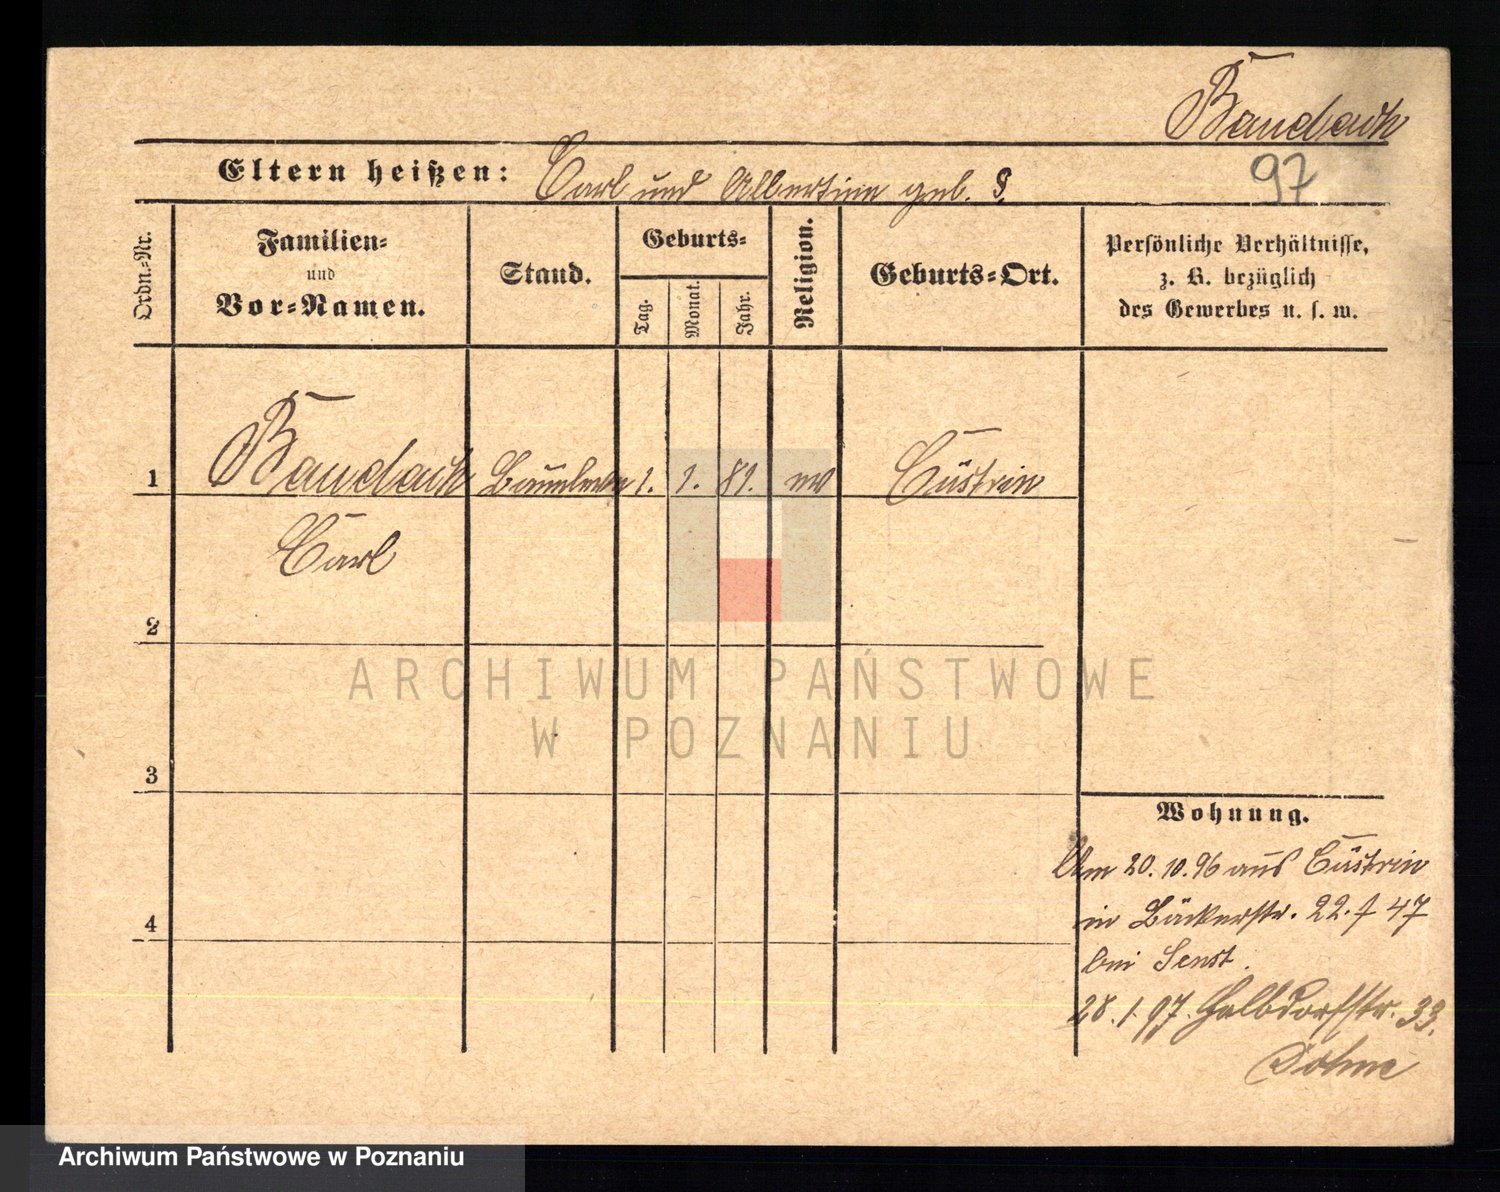 Baudach
97
Eltern heißen: Carl und Albertine geb. ?.
Ordn.-Nr.
Familien-
und
Vor-Namen.
Stand.
Geburts-
Tag.
Monat.
Jahr.
Religion.
Geburts-Ort.
Persönliche Verhältnisse,
z. B. bezüglich
des Gewerbes u. s. w.
1 Baudach 1. 1. 81. ev Cüstrin
Carl
2
3
4
Wohnung.
Am 20. 10. 96 aus Cüstrin
in Bäckerstr. 22. 47
bei Senst.
28. 1. 97. Halbdorfstr. 33.
Dohme
ARCHIWUM PAŃSTWOWE
W POZNANIU
Archiwum Państwowe w Poznaniu